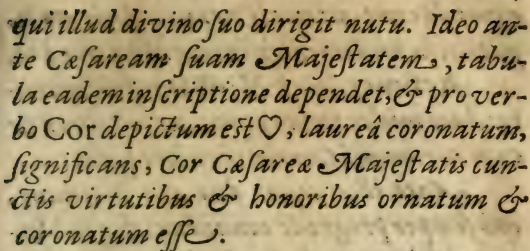 qui illud divino ſuo dirigit nutu. Ideo an-
te Cæſaream ſuam Majeſtatem, tabu-
la eadem inſcriptione dependet, & pro ver-
bo Cor depictum eſt ♡, laureâ coronatum,
ſignificans, Cor Cæſareæ Majeſtatis cun-
ctis virtutibus & honoribus ornatum &
coronatum eſſe.